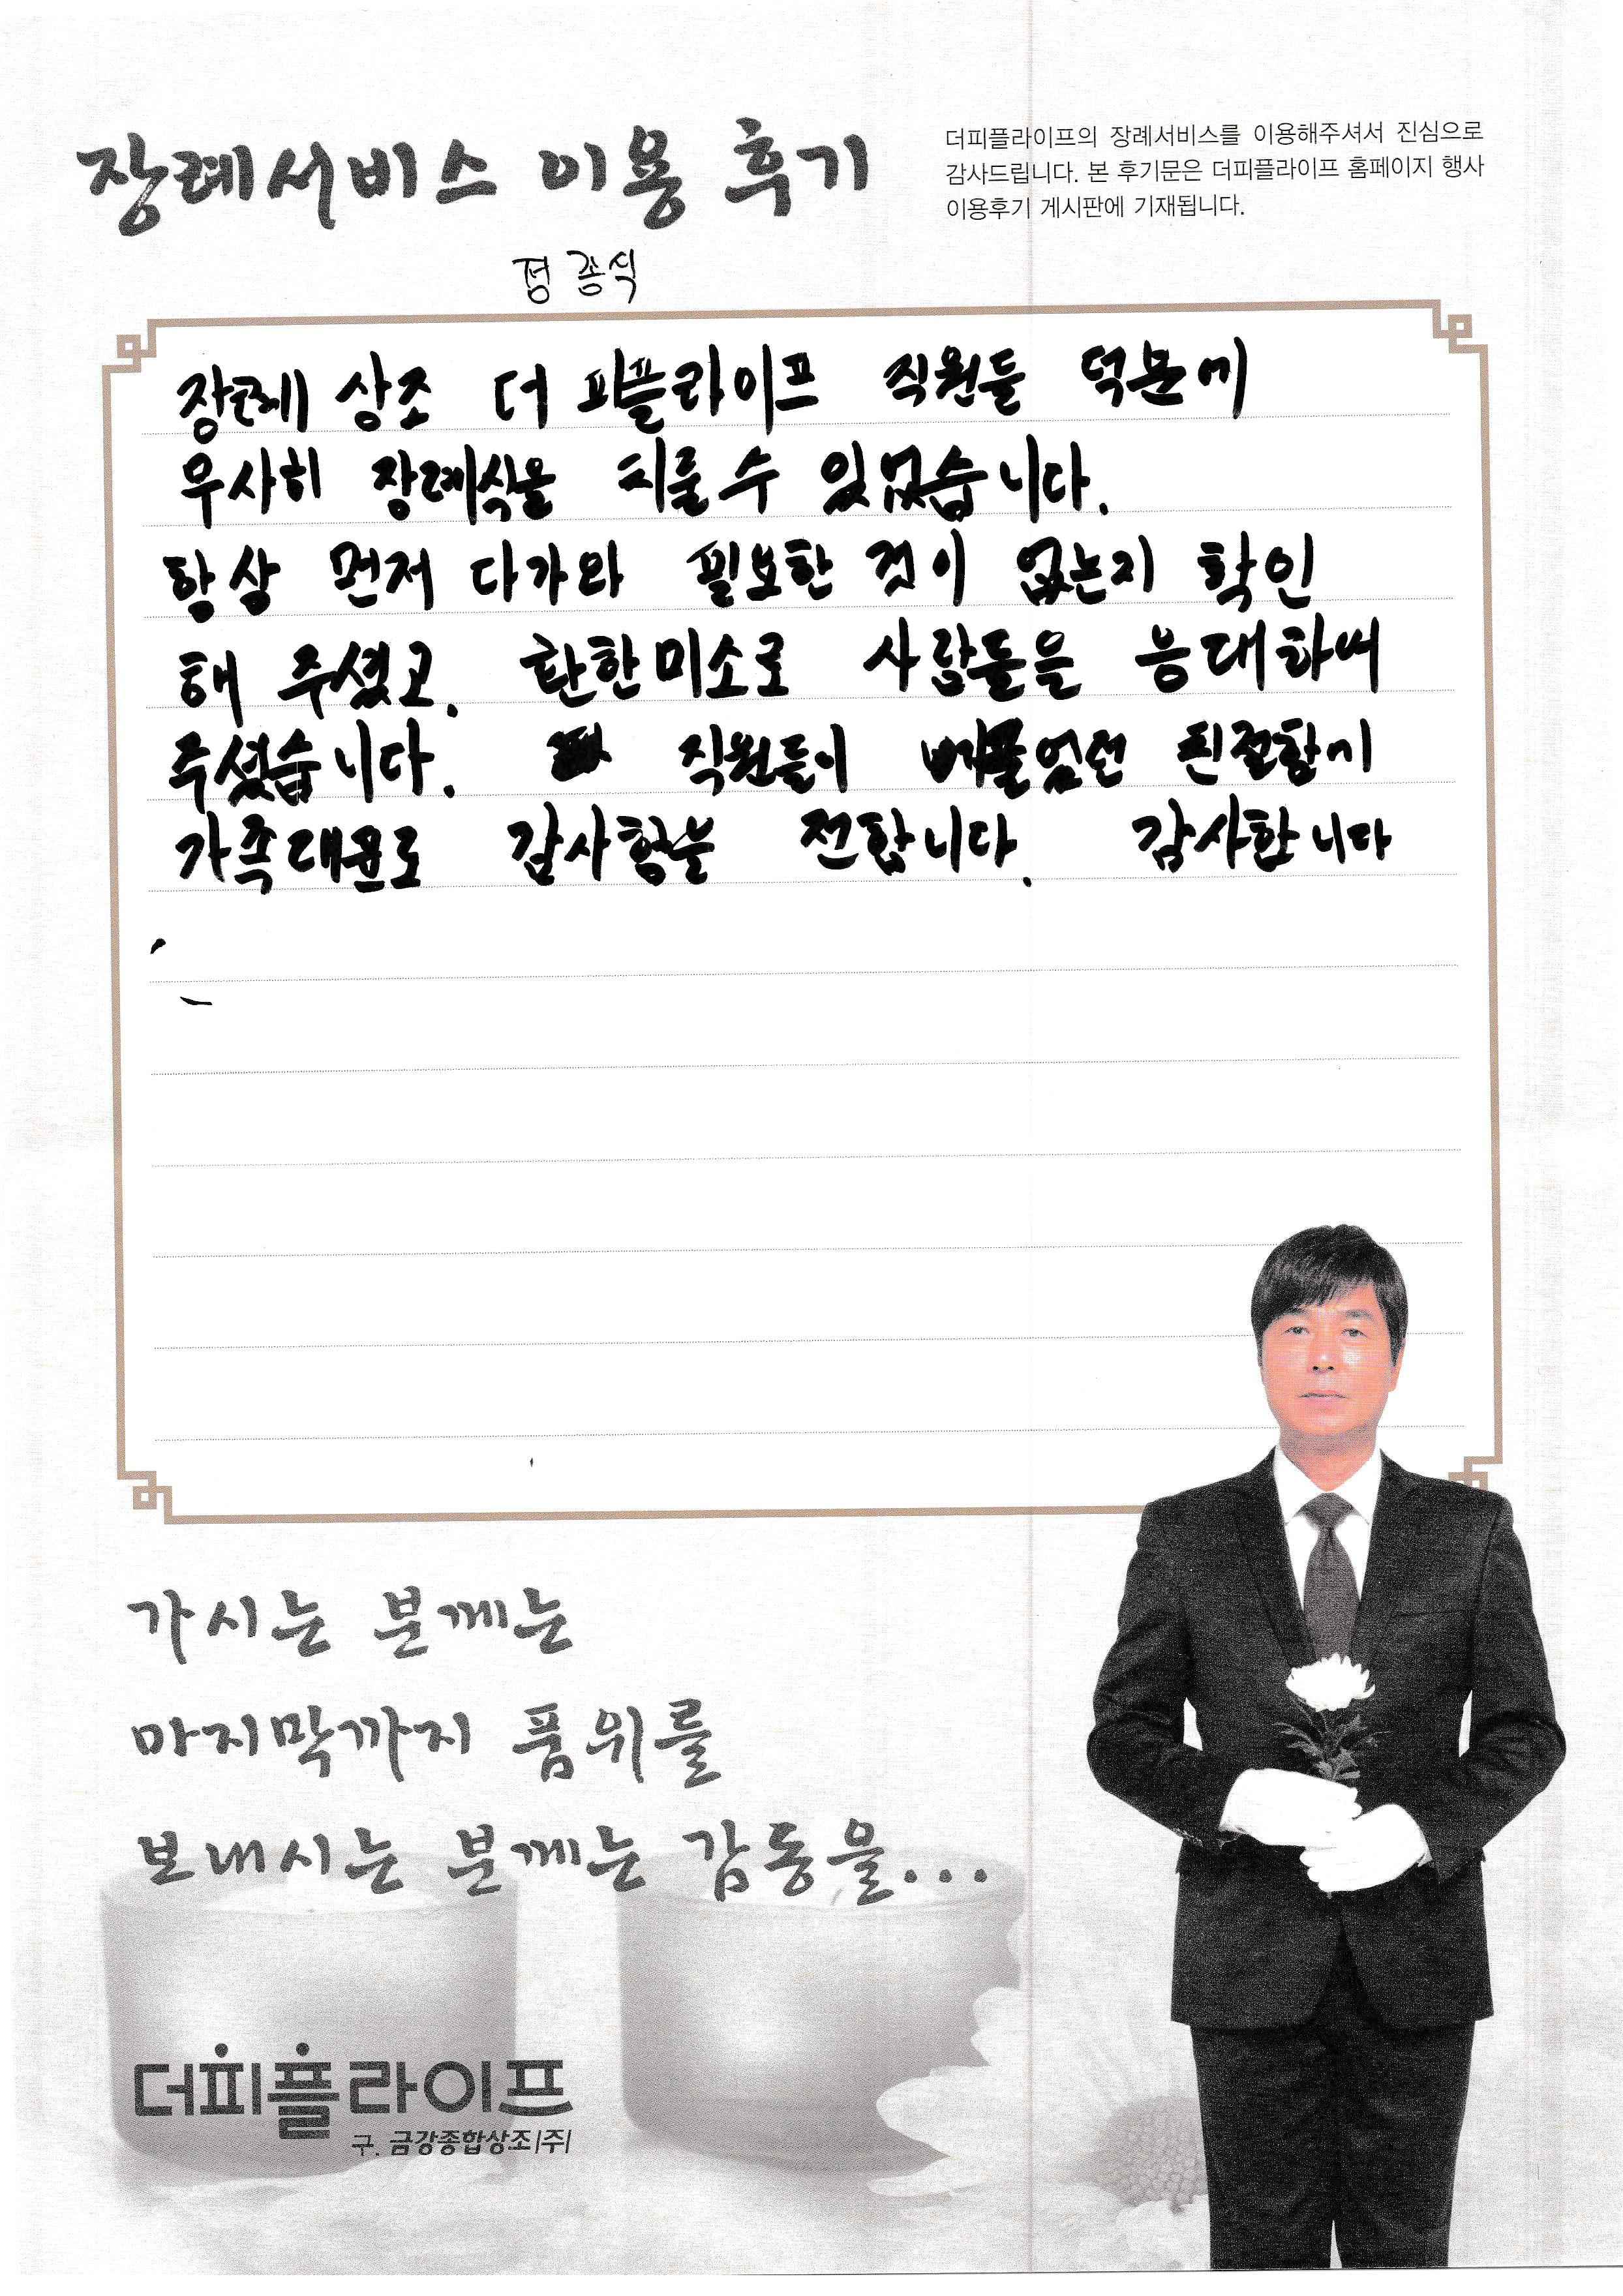 장례서비스 이용 후기
더피플라이프의 장례서비스를 이용해주셔서 진심으로
감사드립니다. 본 후기문은 더피플라이프 홈페이지 행사
이용후기 게시판에 기재됩니다.
정종식
장례 상조 더 피플라이프 직원들 덕분에
무사히 장례식을 치룰수 있었습니다.
항상 먼저 다가와 필요한 것이 없는지 확인
해 주셨고. 환한미소로 사람들을 응대하여
주셨습니다. 직원들이 베풀었던 친절함에
가족대표로 감사함을 전합니다. 감사합니다
가시는 분께는
마지막까지 품위를
보내시는 분께는 감동을...
더피플라이프
구. 금강종합상조|주|